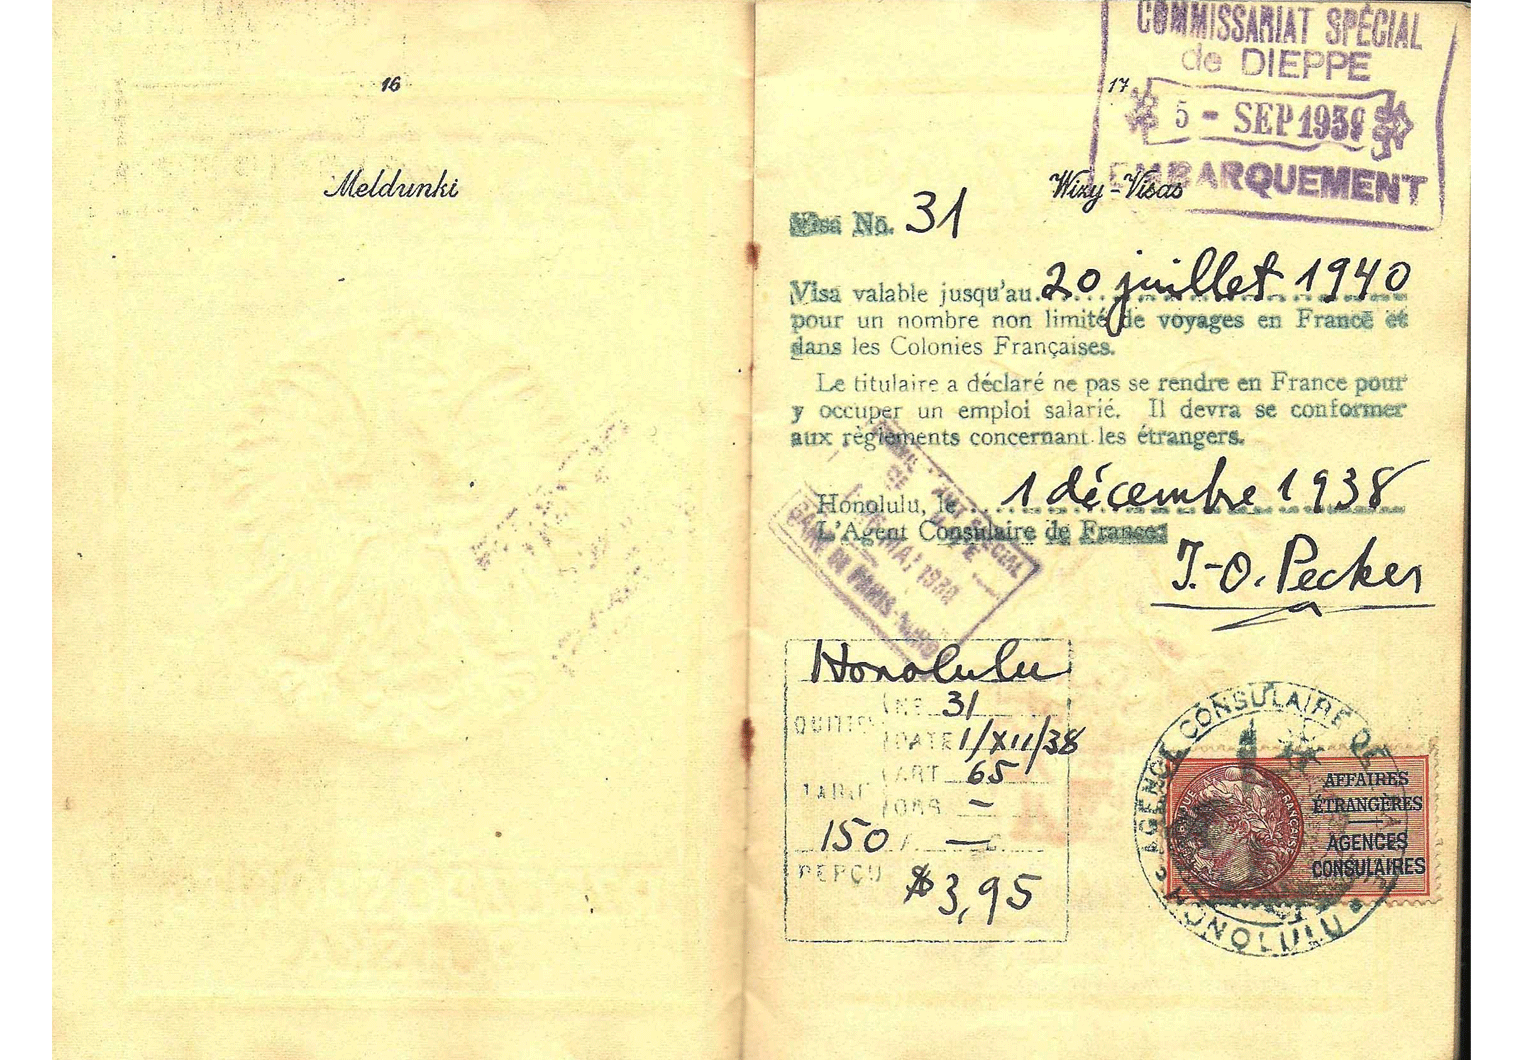 16
Meldunki
COMMISSARIAT SPÉCIAL
de DIEPPE
17
5 - SEP 1939
EMBARQUEMENT
Wizy-Visas
Visa No. 31
Visa valable jusqu'au 20 juillet 1940
pour un nombre non limité de voyages en France et
dans les Colonies Françaises.
Le titulaire a déclaré ne pas se rendre en France pour
y occuper un emploi salarié. Il devra se conformer
aux règlements concernant les étrangers.
Honolulu, le 1 décembre 1938
L'Agent Consulaire de France:
J.-O. Pecker
SPÉCIAL
MAI
GARE DE PARIS-NORD
Honolulu
No 31
DATE 1/XII/38
ART 65
TARIF
OBS —
150 F — C
PERÇU
$3,95
AGENCE CONSULAIRE DE
HONOLULU
AFFAIRES
ÉTRANGÈRES
AGENCES
CONSULAIRES